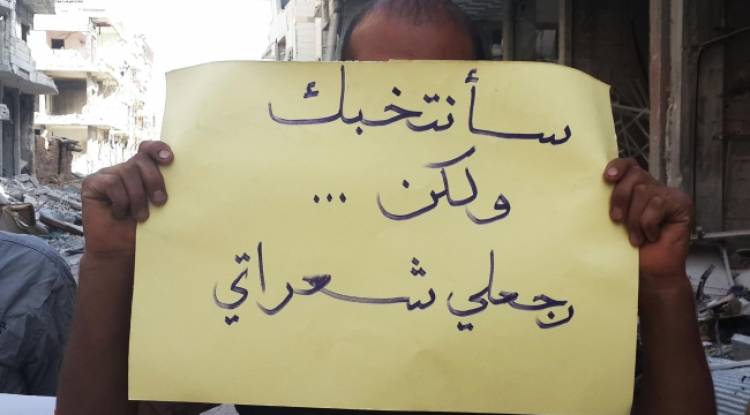 سأنتخبك
ولكن ...
رجعلي شعراتي